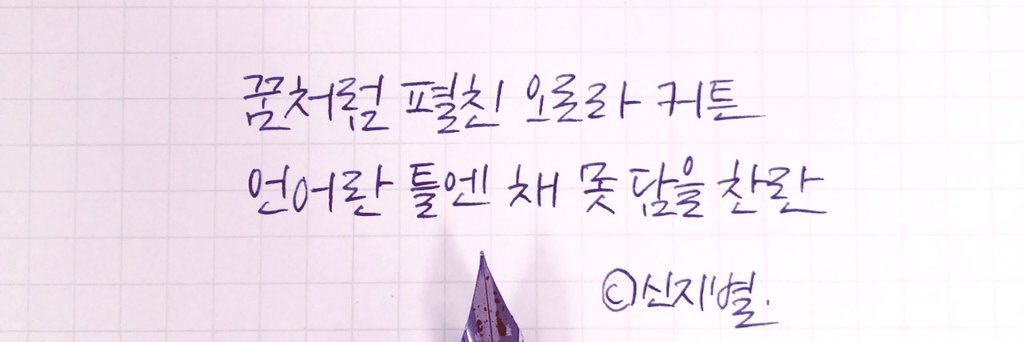 꿈처럼 펼친 오로라 커튼
언어란 틀엔 채 못 담을 찬란
©신지별.